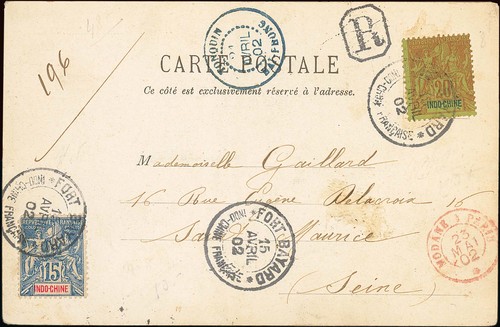 196
TONQUIN
21 AVRIL 02
HAÏPHONG
R
CARTE POSTALE
Ce côté est exclusivement réservé à l'adresse.
20
INDO-CHINE
INDO-CHINE FRANÇAISE
02
Mademoiselle Gaillard
16 Rue Eugène Delacroix 16
Saint Maurice
(Seine)
FORT BAYARD
15
AVRIL
02
INDO-CHINE FRANÇAISE
15
INDO-CHINE
FORT BAYARD
15
AVRIL
02
INDO-CHINE FRANÇAISE
MODANE A PARIS
23
MAI
02